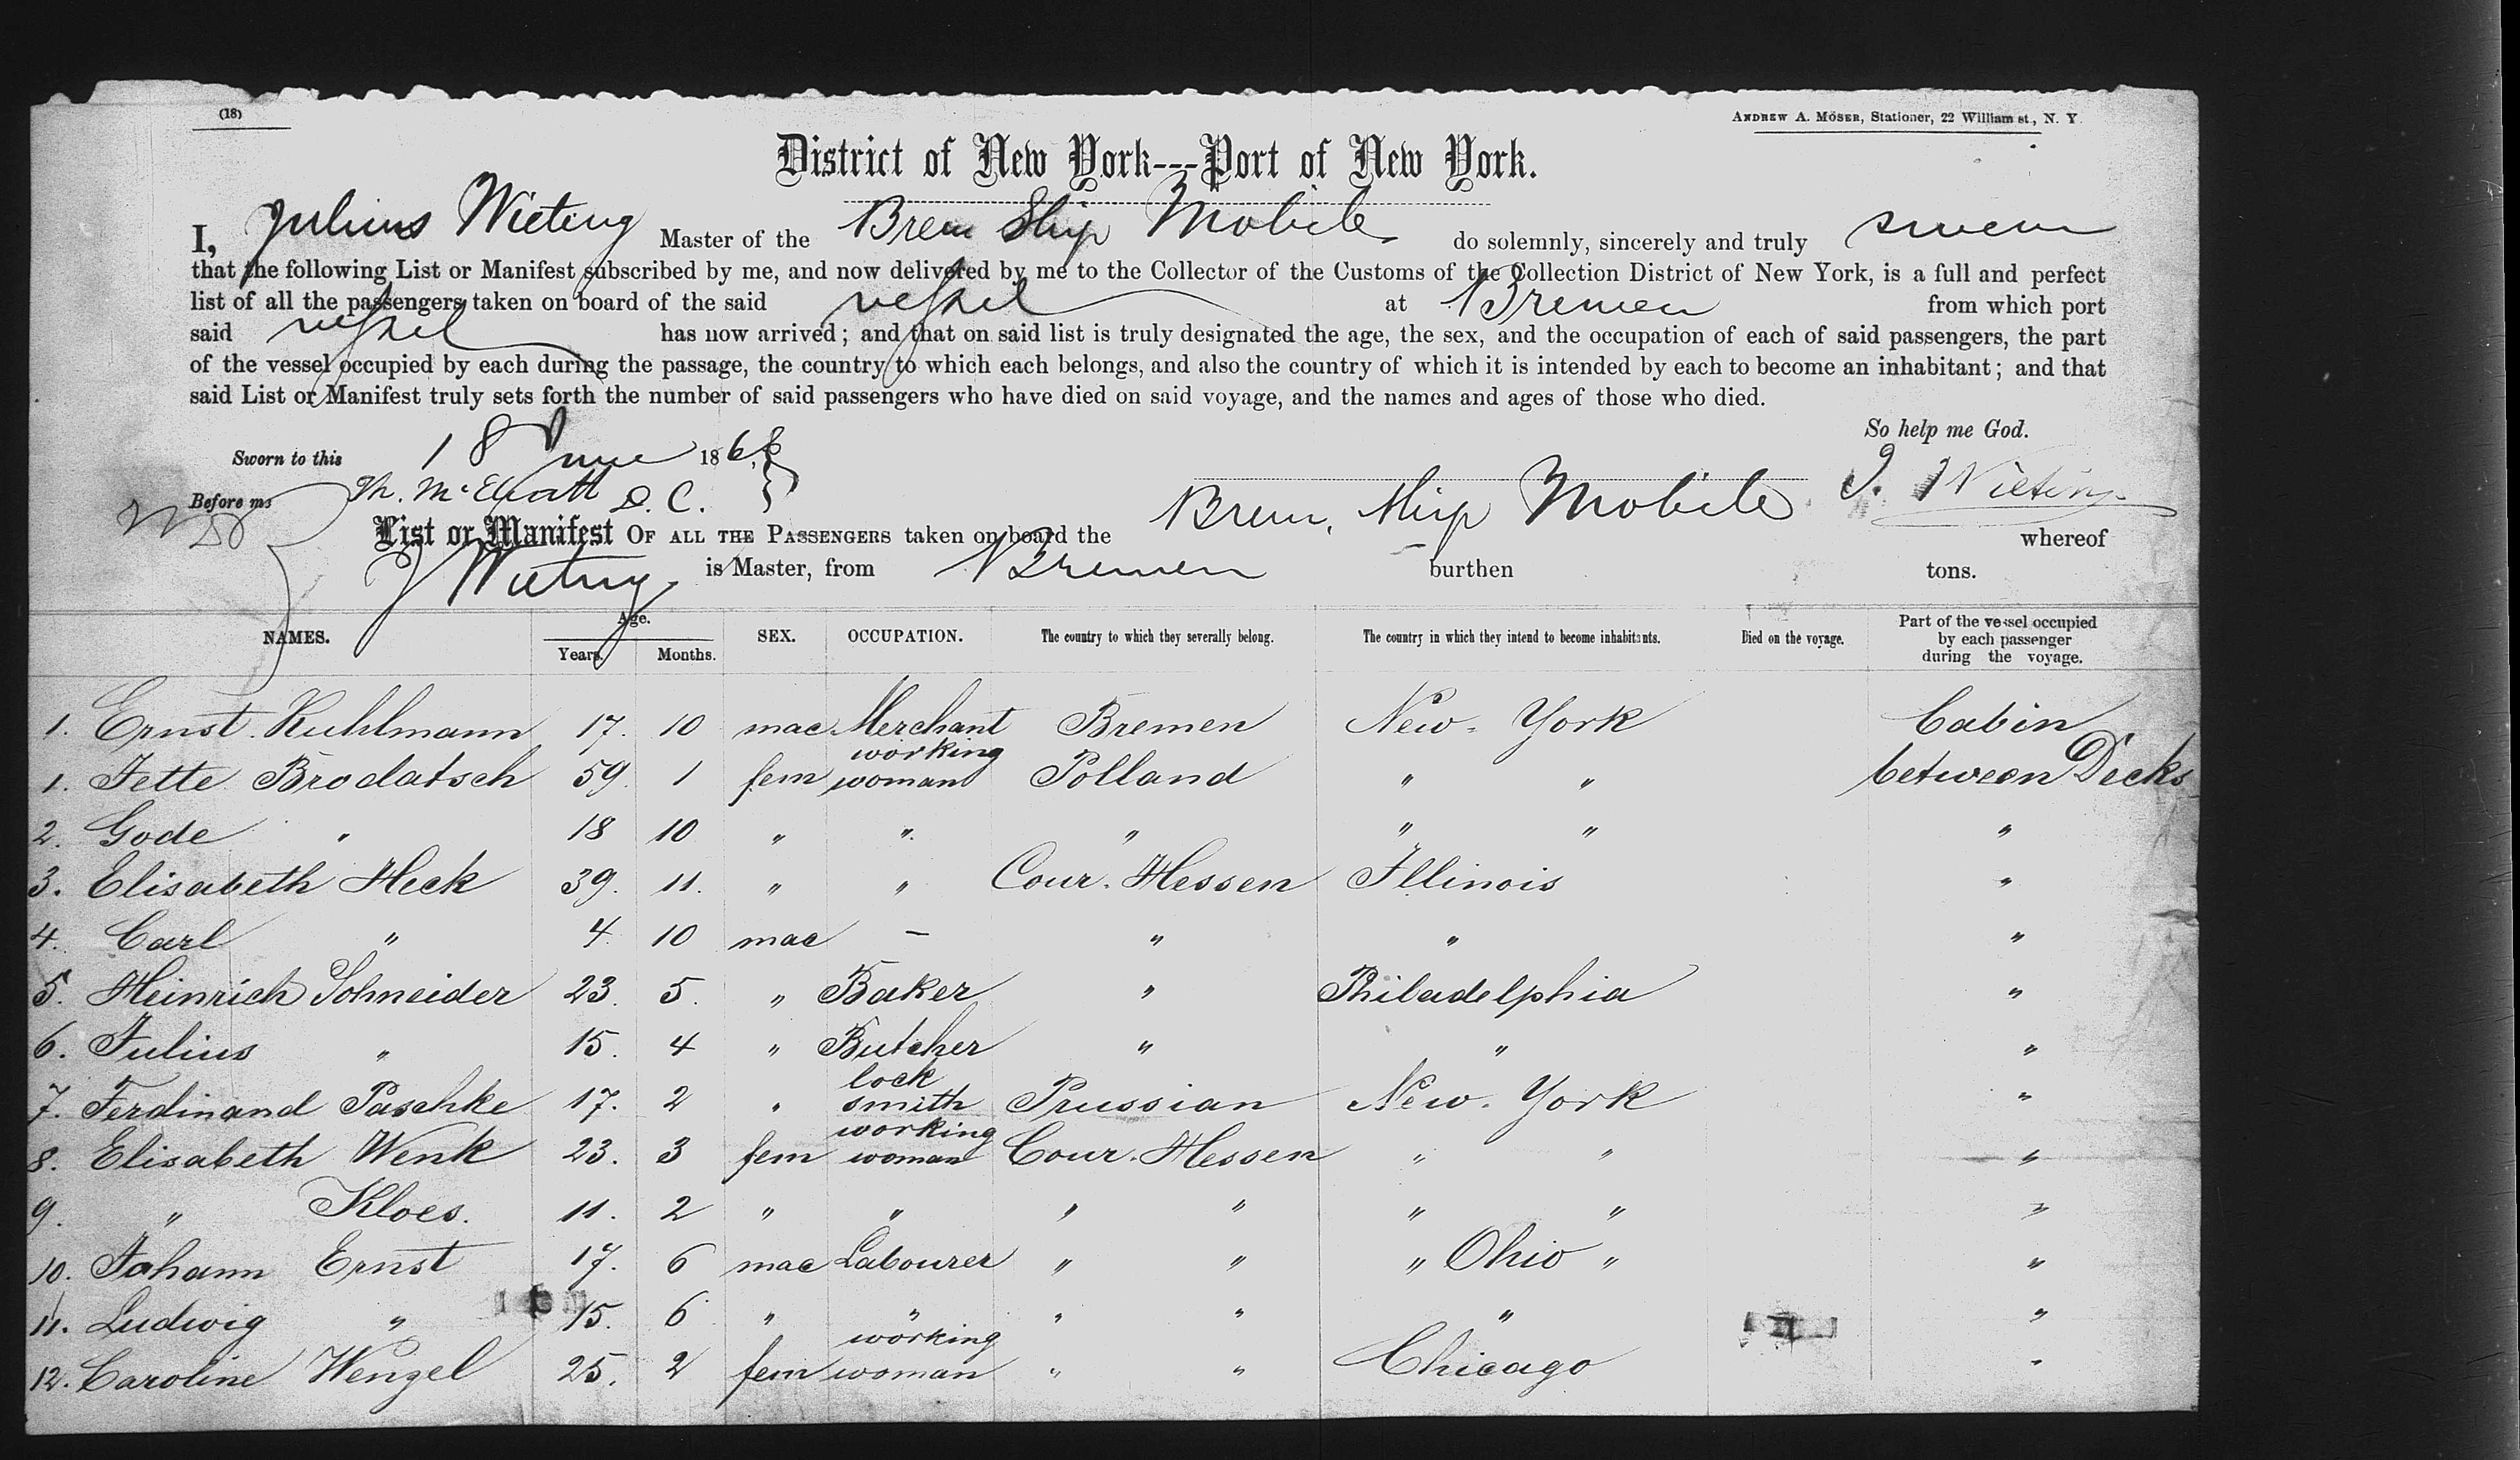 (18)
ANDREW A. MÖSER, Stationer, 22 William st., N. Y.
District of New York---Port of New York.
I, Julius Wieting Master of the Brem Ship Mobile do solemnly, sincerely and truly swear
that the following List or Manifest subscribed by me, and now delivered by me to the Collector of the Customs of the Collection District of New York, is a full and perfect
list of all the passengers taken on board of the said vessel at Bremen from which port
said vessel has now arrived; and that on said list is truly designated the age, the sex, and the occupation of each of said passengers, the part
of the vessel occupied by each during the passage, the country to which each belongs, and also the country of which it is intended by each to become an inhabitant; and that
said List or Manifest truly sets forth the number of said passengers who have died on said voyage, and the names and ages of those who died.
So help me God.
Sworn to this 18 June 186
J. Wieting
Before me Th. McElratt D. C.
List or Manifest OF ALL THE PASSENGERS taken on board the Brem. Ship Mobile whereof
J Wieting is Master, from Bremen burthen tons.
NAMES. Age. Years. Months. SEX. OCCUPATION. The country to which they severally belong. The country in which they intend to become inhabitants. Died on the voyage. Part of the vessel occupied by each passenger during the voyage.
1. Ernst Kuhlmann 17. 10 mac Merchant Bremen New-York Cabin
1. Jette Brodatsch 59. 1 fem working woman Polland " " between Decks
2. Gode " 18 10 " " " " " "
3. Elisabeth Heck 39. 11. " " Cour. Hessen Illinois "
4. Carl " 4. 10 mac – " " "
5. Heinrich Schneider 23. 5. " Baker " Philadelphia "
6. Julius " 15. 4 " Butcher " " "
7. Ferdinand Paschke 17. 2 " lock smith Prussian New-York "
8. Elisabeth Wenk 23. 3 fem working woman Cour. Hessen " " "
9. " Kloes. 11. 2 " " " " " " "
10. Johann Ernst 17. 6 mac Labourer " " " Ohio " "
11. Ludwig " 15. 6 " " " " " "
12. Caroline Wenzel 25. 2 fem working woman " " Chicago "